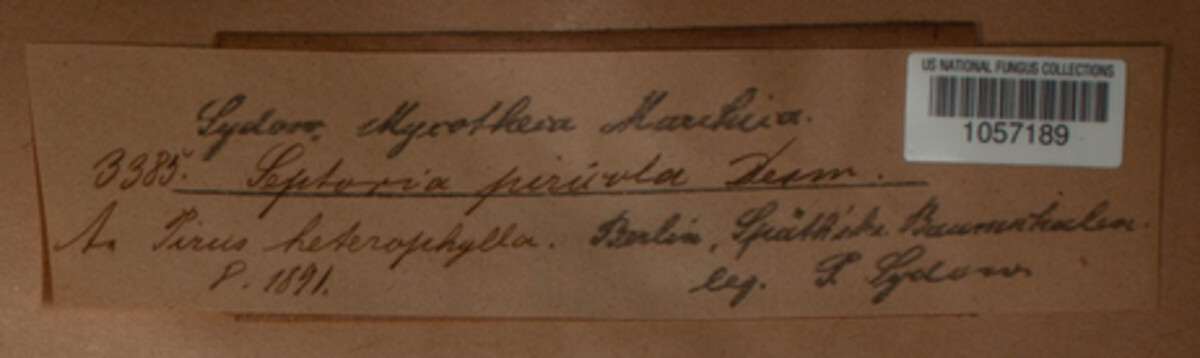 US NATIONAL FUNGUS COLLECTIONS
1057189
Sydow, Mycotheca Marchica.
3385. Septoria piricola Desm.
An Pirus heterophylla. Berlin, Späth'sche Baumschulen.
8. 1891. leg. P. Sydow